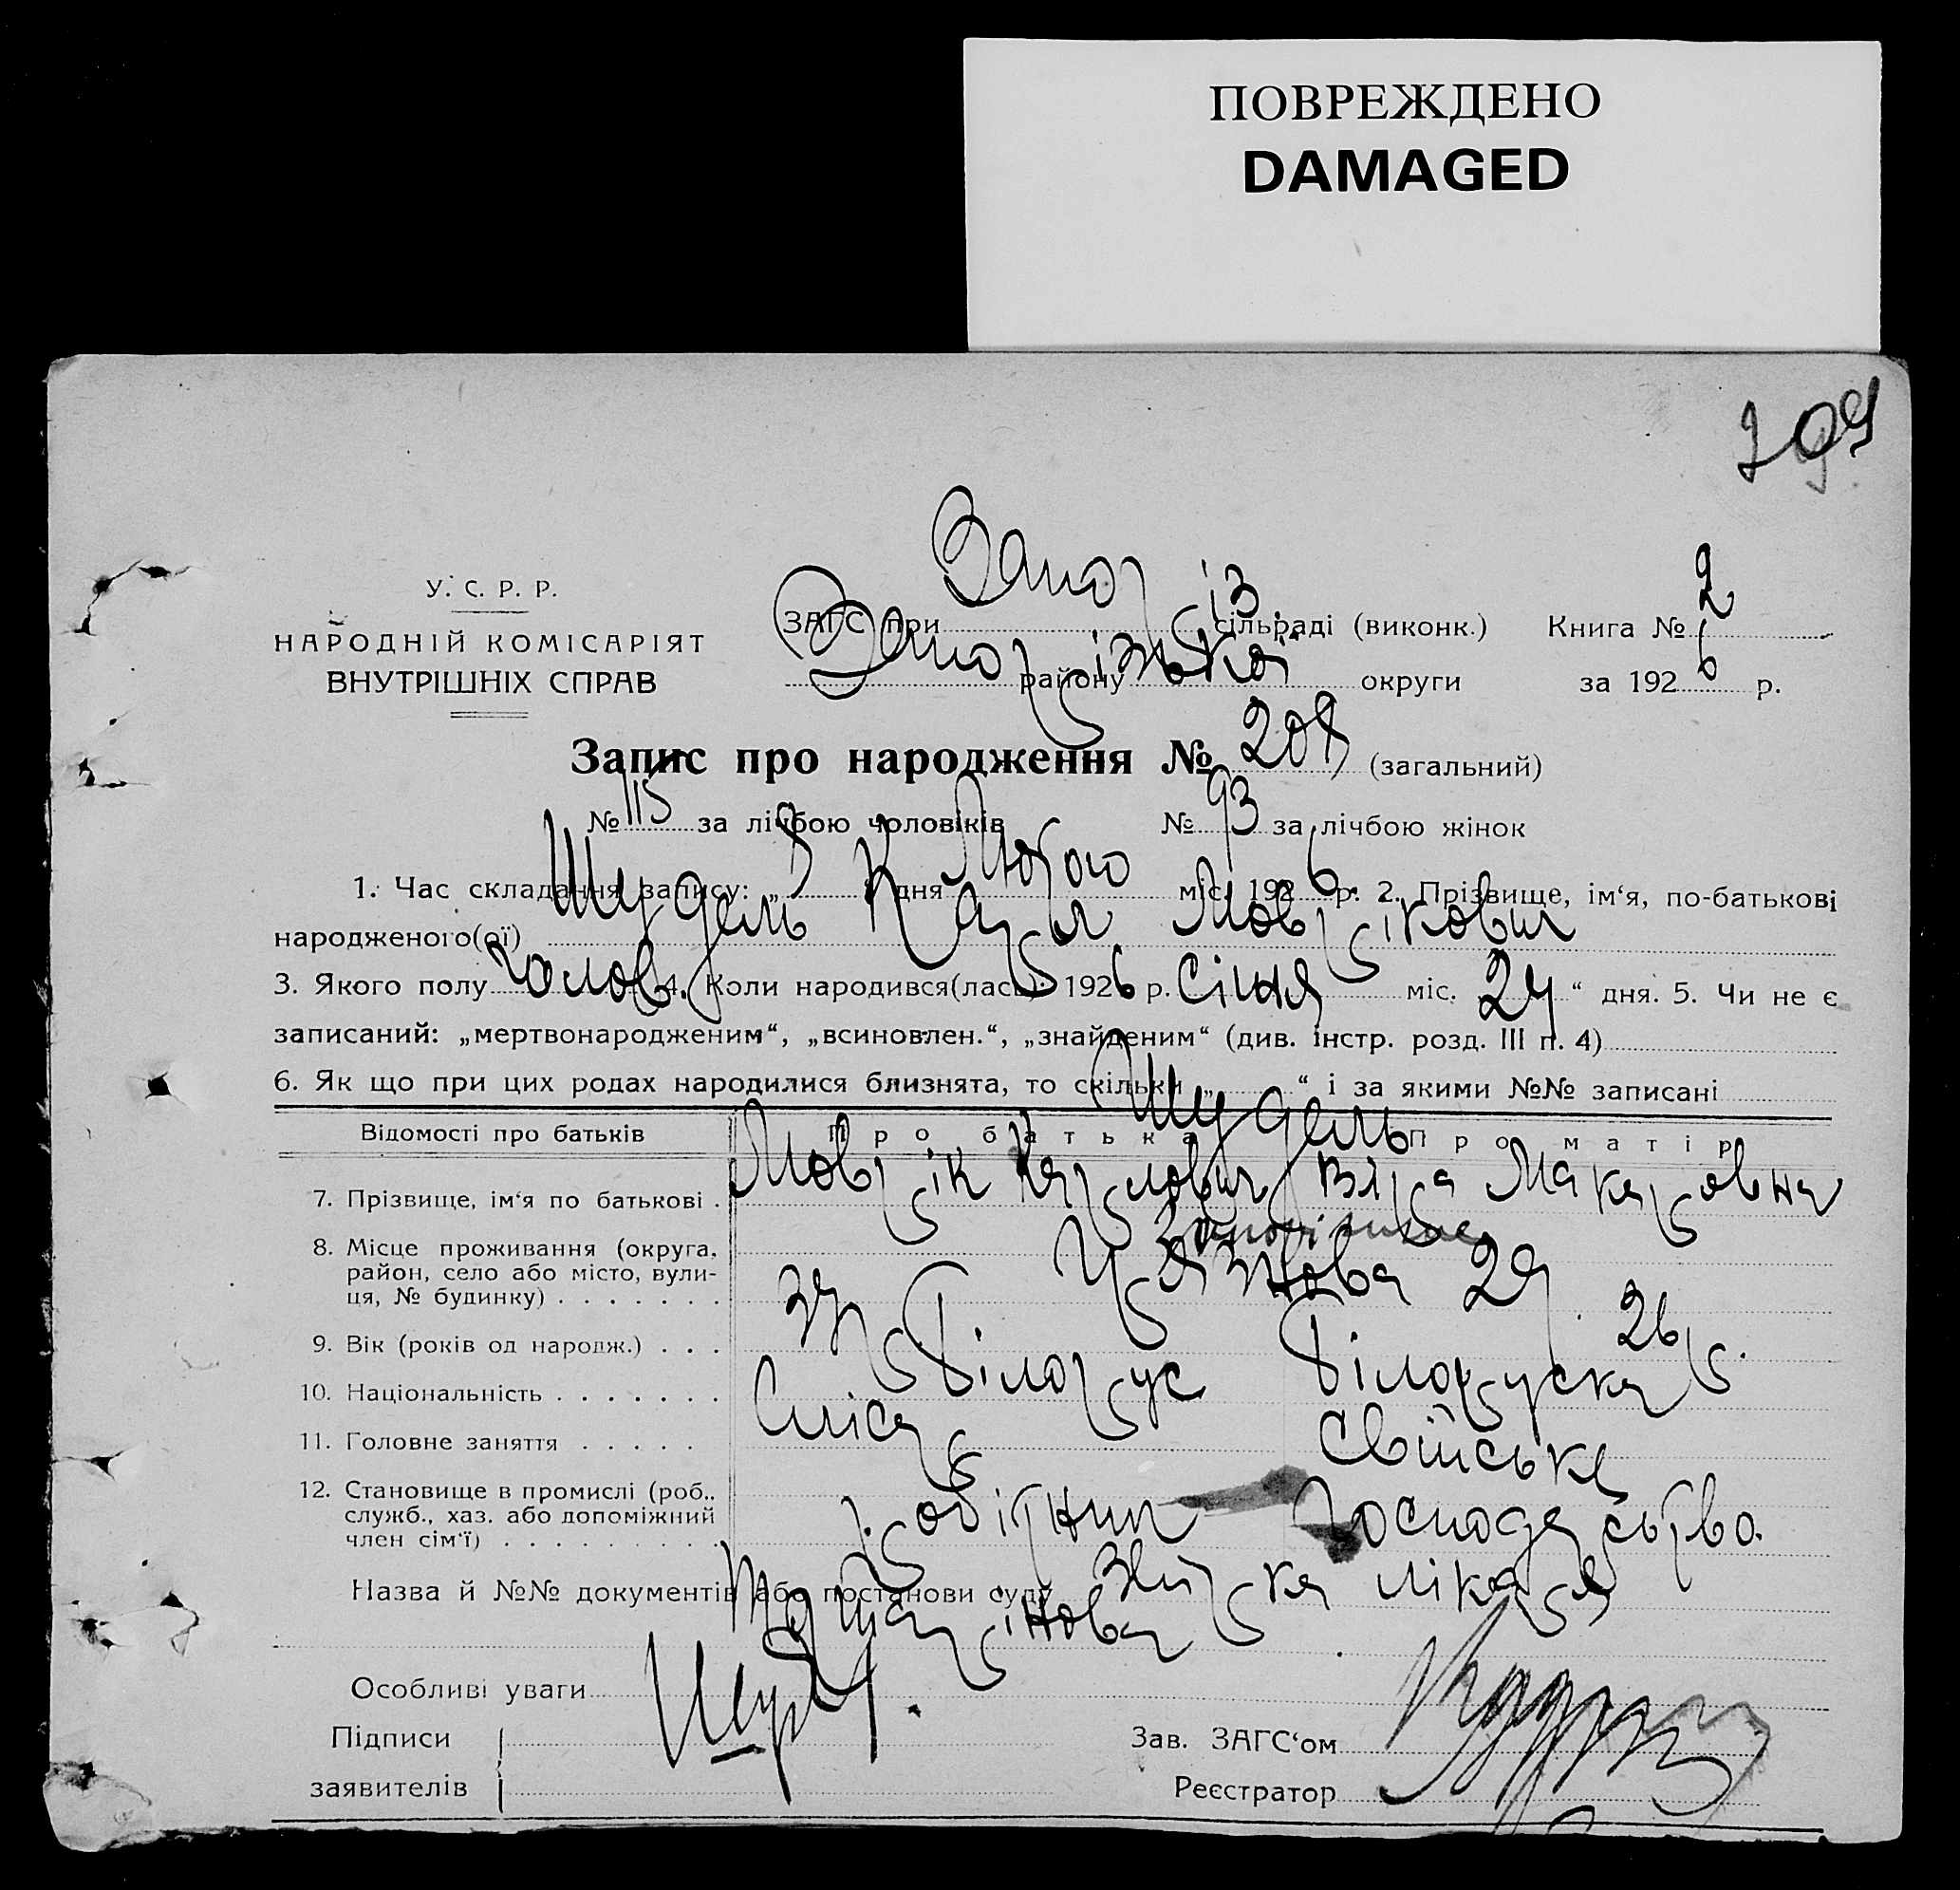 ПОВРЕЖДЕНО
DAMAGED
У. С. Р. Р.
НАРОДНІЙ КОМІСАРІЯТ
ВНУТРІШНІХ СПРАВ
ЗАГС при Запоріз. сільраді (виконк.) Книга № 2
Запорізької району округи за 1926 р.
Запис про народження № 208 (загальний)
№ 115 за лічбою чоловіків № 93 за лічбою жінок
1. Час складання запису: „ дня Лютого міс. 1926 р. 2. Прізвище, ім‘я, по-батькові
народженого(ої) Шудель Карл Моврікович
3. Якого полу чолов. 4. Коли народився(лась): 1926 р. Січня міс. 24 “ дня. 5. Чи не є
записаний: „мертвонародженим“, „всиновлен.“, „знайденим“ (див. інстр. розд. III п. 4)
6. Як що при цих родах народилися близнята, то скільки „ “ і за якими №№ записані
Відомості про батьків Про батька Про матір
Шудель
7. Прізвище, ім‘я по батькові . Моврік Карлович Віра Макаровна
8. Місце проживання (округа, район, село або місто, вулиця, № будинку) . . . . . . . Запоріжжє
29
9. Вік (років од народж.) . . . 37 р. 26 р.
10. Національність . . . . . . . Білорус Білоруска
11. Головне заняття . . . . . Слісар Свійське
12. Становище в промислі (роб., служб., хаз. або допоміжний член сім‘ї) . . . . . . . . . робітник господарство
Назва й №№ документів або постанови суду лікаря
Особливі уваги
Підписи
заявителів
Зав. ЗАГС‘ом
Реєстратор